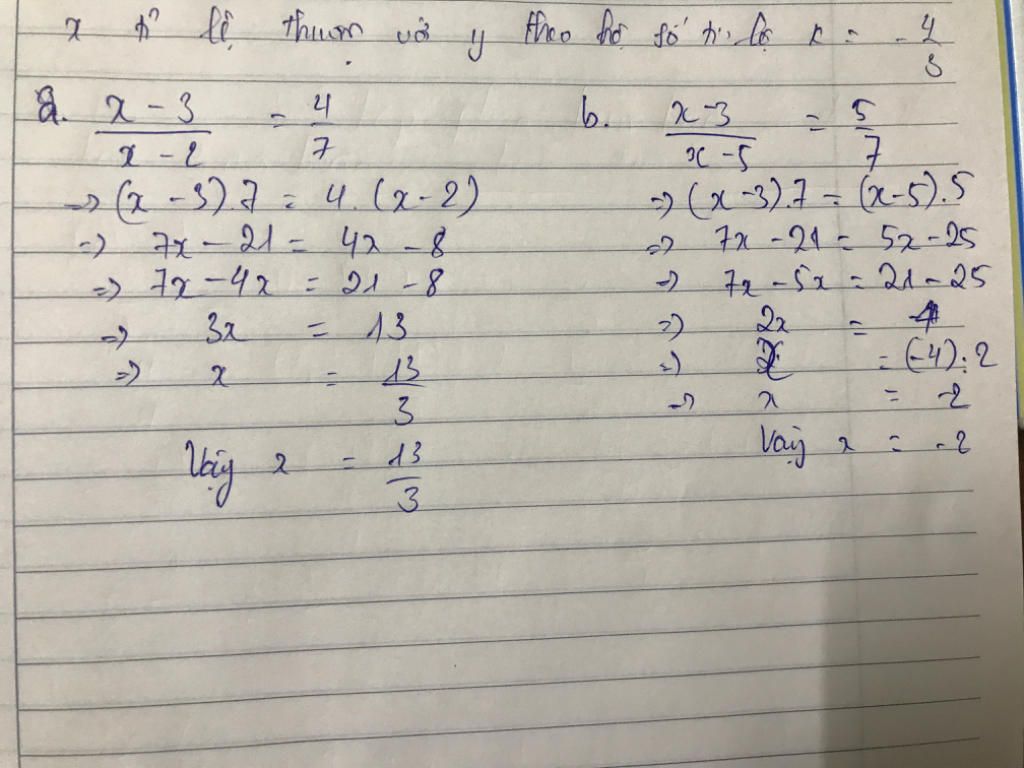 x tỉ lệ thuận với y theo hệ số tỉ lệ k = -4/3
a. (x - 3)/(x - 2) = 4/7
=> (x - 3).7 = 4.(x - 2)
=> 7x - 21 = 4x - 8
=> 7x - 4x = 21 - 8
=> 3x = 13
=> x = 13/3
Vậy x = 13/3
b. (x - 3)/(x - 5) = 5/7
=> (x - 3).7 = (x - 5).5
=> 7x - 21 = 5x - 25
=> 7x - 5x = 21 - 25
=> 2x = -4
=> x = (-4) : 2
=> x = -2
Vậy x = -2